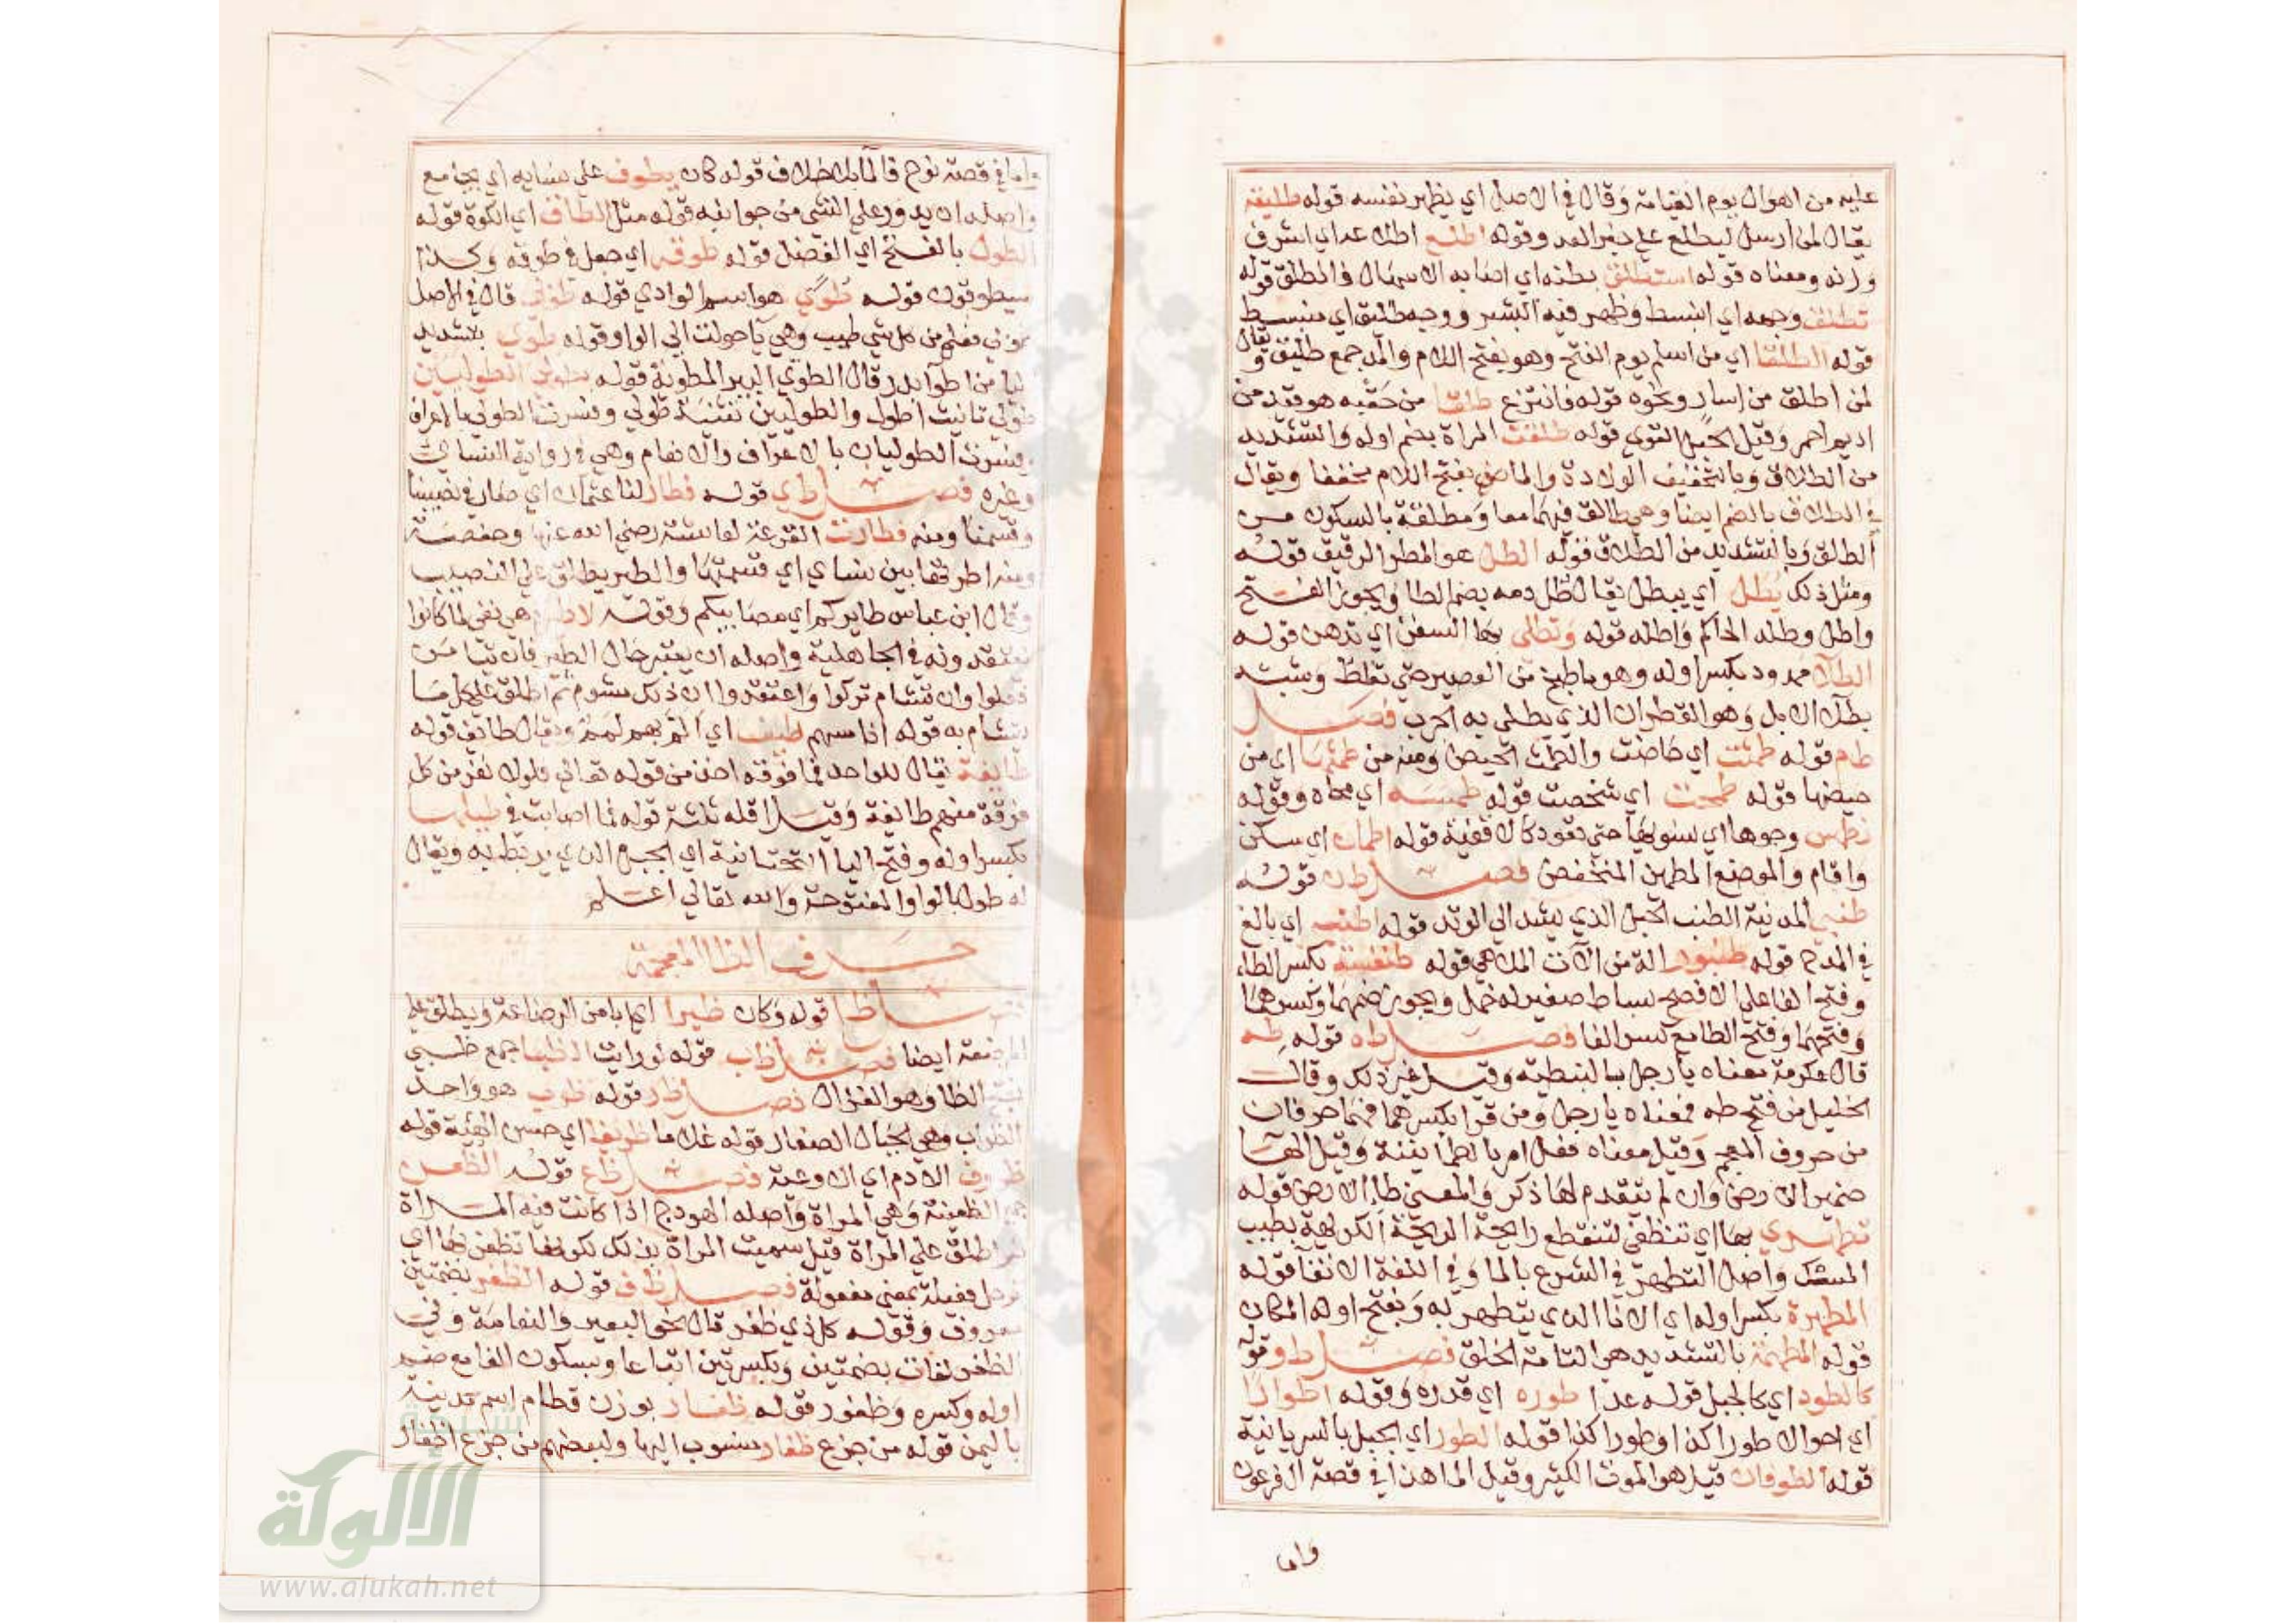 عليه من اهوال يوم القيامة وقال في الاصل اي يظهر نفسه قوله طليعة
يقال لمن أرسل ليطلع على خبر العدو وقوله اطلع اطلاعا اي اشرف
وزنه ومعناه قوله استطلق بطنه اي اصابه الاسهال فانطلق قوله
تطلق وجهه اي انبسط وظهر فيه البشر ووجه طليق اي منبسط
قوله الطلقا اي من اسلم يوم الفتح وهو بفتح اللام والمد جمع طليق ويقال
لمن اطلق من إسار ونحوه قوله فانتزع طلقا من حقبه هو قيد من
اديم احمر وقيل الحبل القوي قوله طلقت المراة بضم اوله والتشديد
من الطلاق وبالتخفيف الولادة والماضي بفتح اللام مخففا ويقال
في الطلاق بالضم ايضا وهي طالق فيهما معا ومطلقة بالسكون من
الطلق وبالتشديد من الطلاق قوله الطل هو المطر الرقيق قوله
ومثل ذلك يُطَلّ اي يبطل يقال طُلّ دمه بضم الطا ويجوز الفتح
واطل وطله الحاكم واطله قوله وتطلى بها السفن اي تدهن قوله
الطلا ممدود بكسر اوله وهو ما طبخ من العصير حتى تغلظ وشبه
بطلا الابل وهو القطران الذي يطلى به الجرب فصل
طم قوله طمثت اي حاضت والطمث الحيض ومنه من طمثها اي من
حيضها قوله طمحت اي شخصت قوله طمسه اي محاه وقوله
نطمس وجوها اي نسويها حتى تعود كالاقفية قوله اطمان اي سكن
واقام والموضع المطمئن المنخفض فصل طن قوله
طنبي المدينة الطنب الحبل الذي يشد الى الوتد قوله اطنب اي بالغ
في المدح قوله طنبور الة من الات الملاهي قوله طنفسة بكسر الطاء
وفتح الفا على الافصح بساط صغير له خمل ويجوز ضمهما وكسرهما
وفتحهما وفتح الطا مع كسر الفا فصل طه قوله طه
قال عكرمة معناه يا رجل بالنبطية وقيل غير ذلك وقال
الخليل من فتح طه فمعناه يا رجل ومن قرا بكسرهما فهما حرفان
من حروف المعجم وقيل معناه فعل امر بالطمانينة وقيل الها
ضمير الارض وان لم يتقدم لها ذكر والمعنى طا الارض قوله
تطهري بها اي تنظفي لتنقطع رايحة الرايحة الكريهة بطيب
المسك واصل التطهر في الشرع بالما وفي اللغة الانقا قوله
المطهرة بكسر اوله اي الانا الذي يتطهر به وبفتح اوله المكان
قوله المطهمة بالتشديد هو التامة الخلق فصل طو قوله
كالطود اي كالجبل قوله عدا طوره اي قدره وقوله اطوارا
اي احوالا طورا كذا وطورا كذا قوله الطور اي الجبل بالسريانية
قوله الطوفان قيل هو الموت الكثير وقيل الما هذا في قصة ال فرعون
واما
واما في قصة نوح فالما بلا خلاف قوله كان يطوف على نسايه اي يجامع
واصله ان يدور على الشي من جوانبه قوله مثل الطاق اي الكوة قوله
الطول بالفتح اي الفضل قوله طوقه اي جعل في طوقه وكذا
سيطوقون قوله طُوًى هو اسم الوادي قوله طوبى قال في الاصل
هو فعلى من كل شي طيب وهي يا حولت الى الواو قوله طوي بتشديد
اليا من اطواء بدر قال الطوي البير المطوية قوله بطولى الطوليين
طولى تانيث اطول والطوليين تثنية طولى وفسرت الطولى بالاعراف
وفسرت الطوليان بالاعراف والانعام وهي في رواية النسائي
وغيره فصل طي قوله فطار لنا عثمان اي صار في نصيبنا
وقسمنا ومنه فطارت القرعة لعايشة رضي الله عنها وحفصة
ومنه اطرتها بين نساي اي قسمتها والطير يطلق على النصيب
وقال ابن عباس طايركم اي مصايبكم وقوله لا طيرة هي نفي لما كانوا
يعتقدونه في الجاهلية واصله ان يعتبر حال الطير فان تيامن
فعلوا وان تشام تركوا واعتقدوا ان ذلك مشوم ثم اطلق على كل ما
يتشام به قوله اذا مسهم طيف اي الم بهم لمم ويقال طائف قوله
طايفة يقال للواحد فما فوقه اخذ من قوله تعالى فلولا نفر من كل
فرقة منهم طايفة وقيل اقله ثلثة قوله فما اصابت في طيلها
بكسر اوله وفتح اليا التحتانية اي الحبل الذي يربط به ويقال
له طول بالواو المفتوحة والله تعالى اعلم
حرف الظا المعجمة
فصل ظا قوله وكان ظيرا اي ابا من الرضاعة ويطلق على
المرضعة ايضا فصل ظب قوله لو رايت الظبا جمع ظبي
الظا وهو الغزال فصل ظر قوله ظرب هو واحد
الظراب وهي الجبال الصغار قوله غلاما ظريفا اي حسن الهيئة قوله
ظروف الادم اي الاوعية فصل ظع قوله الظعن
جمع الظعينة وهي المراة واصله الهودج اذا كانت فيه المراة
ثم اطلق على المراة قيل سميت المراة بذلك لكونها تظعن بها اي
ترحل فعيلة بمعنى مفعولة فصل ظف قوله الظفر بضمتين
معروف وقوله كل ذي ظفر قال نحو البعير والنعامة وفي
الظفر لغات بضمتين وبكسرتين اتباعا وبسكون الفا مع ضم
اوله وكسره وظفور قوله ظفار بوزن قطام اسم مدينة
باليمن قوله من جزع ظفار منسوب اليها ولبعضهم من جزع اظفار
الألوكة
www.alukah.net